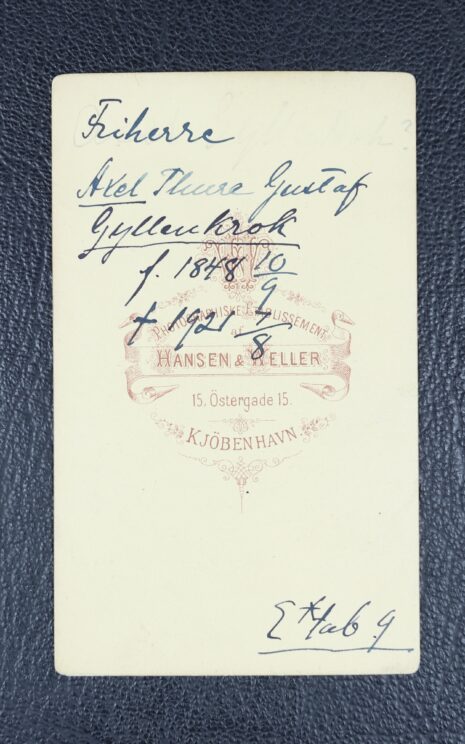 Friherre
Axel Thure Gustaf
Gyllenkrok
f. 1848 10/9
† 1921 7/8
PHOTOGRAPHISKE ETABLISSEMENT
af
HANSEN & WELLER
15. Östergade 15.
KJÖBENHAVN.
tab 9